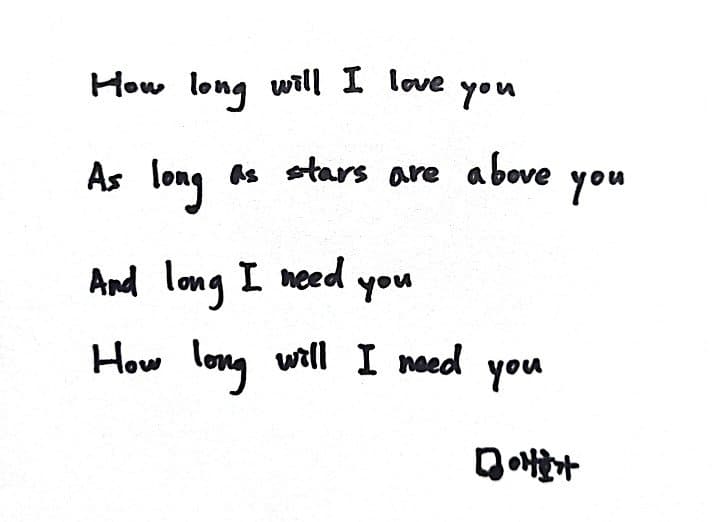 How long will I love you
As long as stars are above you
And long I need you
How long will I need you
애호가